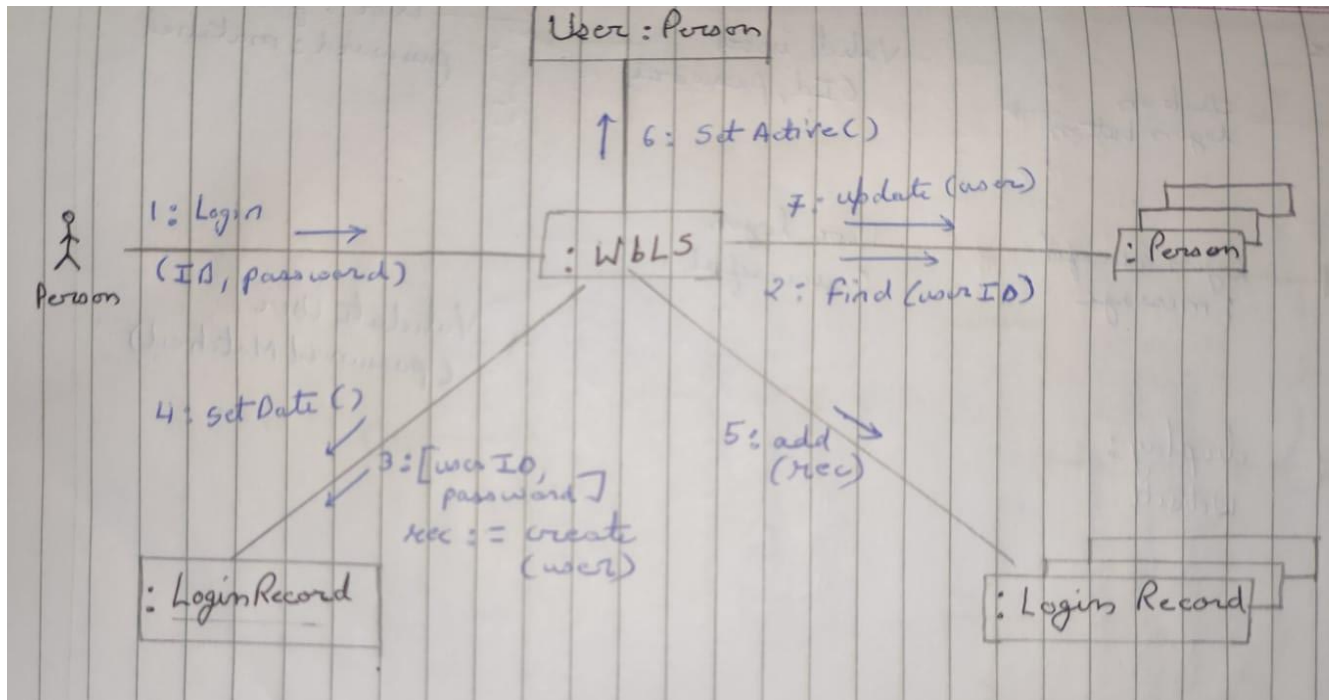 User : Person
6: Set Active()
1: Login
(ID, password)
Person
: WbLS
7: update (user)
2: find (user ID)
: Person
4: setDate ()
3: [user ID,
password]
rec := create
(user)
5: add
(rec)
: Login Record
: Login Record